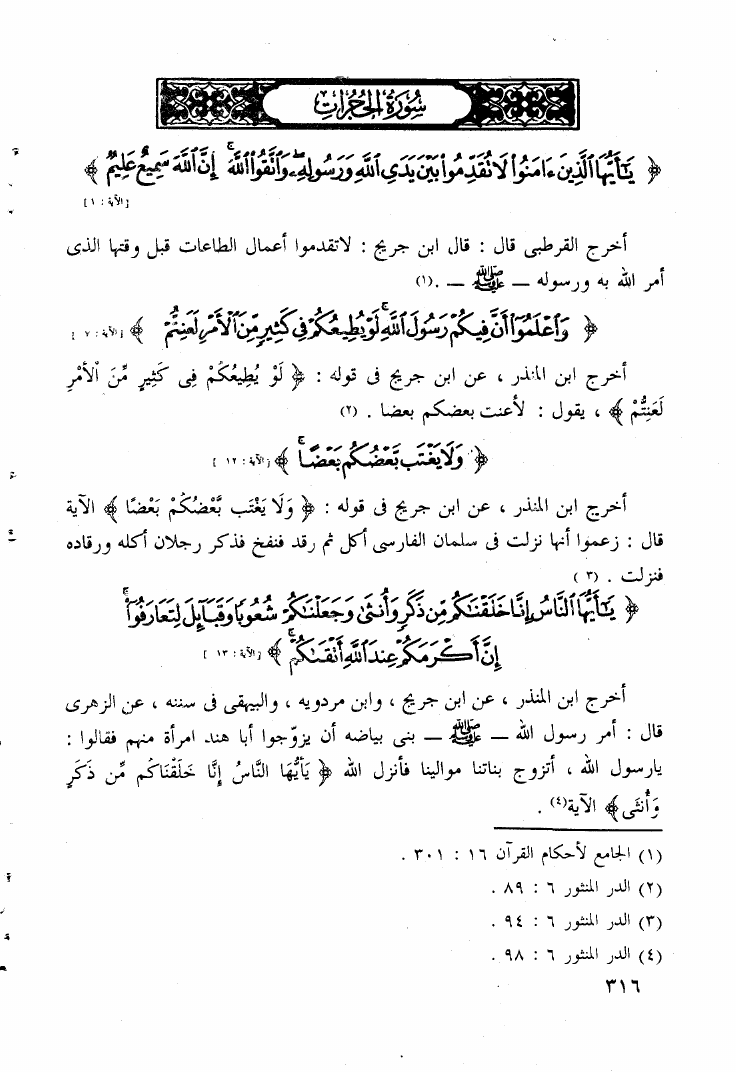 سُورَةُ الحُجُرَات
﴿ يَـٰٓأَيُّهَا ٱلَّذِينَ ءَامَنُوا۟ لَا تُقَدِّمُوا۟ بَيْنَ يَدَىِ ٱللَّهِ وَرَسُولِهِۦ ۖ وَٱتَّقُوا۟ ٱللَّهَ ۚ إِنَّ ٱللَّهَ سَمِيعٌ عَلِيمٌ ﴾
[الآية : ١]
أخرج القرطبى قال : قال ابن جريج : لاتقدموا أعمال الطاعات قبل وقتها الذى
أمر الله به ورسوله ــ ﷺ ــ .(١)
﴿ وَٱعْلَمُوٓا۟ أَنَّ فِيكُمْ رَسُولَ ٱللَّهِ ۚ لَوْ يُطِيعُكُمْ فِى كَثِيرٍ مِّنَ ٱلْأَمْرِ لَعَنِتُّمْ ﴾ [الآية : ٧ ]
أخرج ابن المنذر ، عن ابن جريج فى قوله : ﴿ لَوْ يُطِيعُكُمْ فِى كَثِيرٍ مِّنَ الْأَمْرِ
لَعَنِتُّمْ ﴾ ، يقول : لأعنت بعضكم بعضا . (٢)
﴿ وَلَا يَغْتَب بَّعْضُكُم بَعْضًا ۚ ﴾ [الآية : ١٢ ]
أخرج ابن المنذر ، عن ابن جريج فى قوله : ﴿ وَلَا يَغْتَب بَّعْضُكُمْ بَعْضًا ﴾ الآية
قال : زعموا أنها نزلت فى سلمان الفارسى أكل ثم رقد فنفخ فذكر رجلان أكله ورقاده
فنزلت . (٣)
﴿ يَـٰٓأَيُّهَا ٱلنَّاسُ إِنَّا خَلَقْنَـٰكُم مِّن ذَكَرٍ وَأُنثَىٰ وَجَعَلْنَـٰكُمْ شُعُوبًا وَقَبَآئِلَ لِتَعَارَفُوٓا۟ ۚ
إِنَّ أَكْرَمَكُمْ عِندَ ٱللَّهِ أَتْقَىٰكُمْ ۚ ﴾ [الآية : ١٣ ]
أخرج ابن المنذر ، عن ابن جريج ، وابن مردويه ، والبيهقى فى سننه ، عن الزهرى
قال : أمر رسول الله ــ ﷺ ــ بنى بياضه أن يزوّجوا أبا هند امرأة منهم فقالوا :
يارسول الله ، أتزوج بناتنا موالينا فأنزل الله ﴿ يَأَيُّهَا النَّاسُ إِنَّا خَلَقْنَاكُم مِّن ذَكَرٍ
وَأُنثَى ﴾ الآية(٤) .
(١) الجامع لأحكام القرآن ١٦ : ٣٠١ .
(٢) الدر المنثور ٦ : ٨٩ .
(٣) الدر المنثور ٦ : ٩٤ .
(٤) الدر المنثور ٦ : ٩٨ .
٣١٦